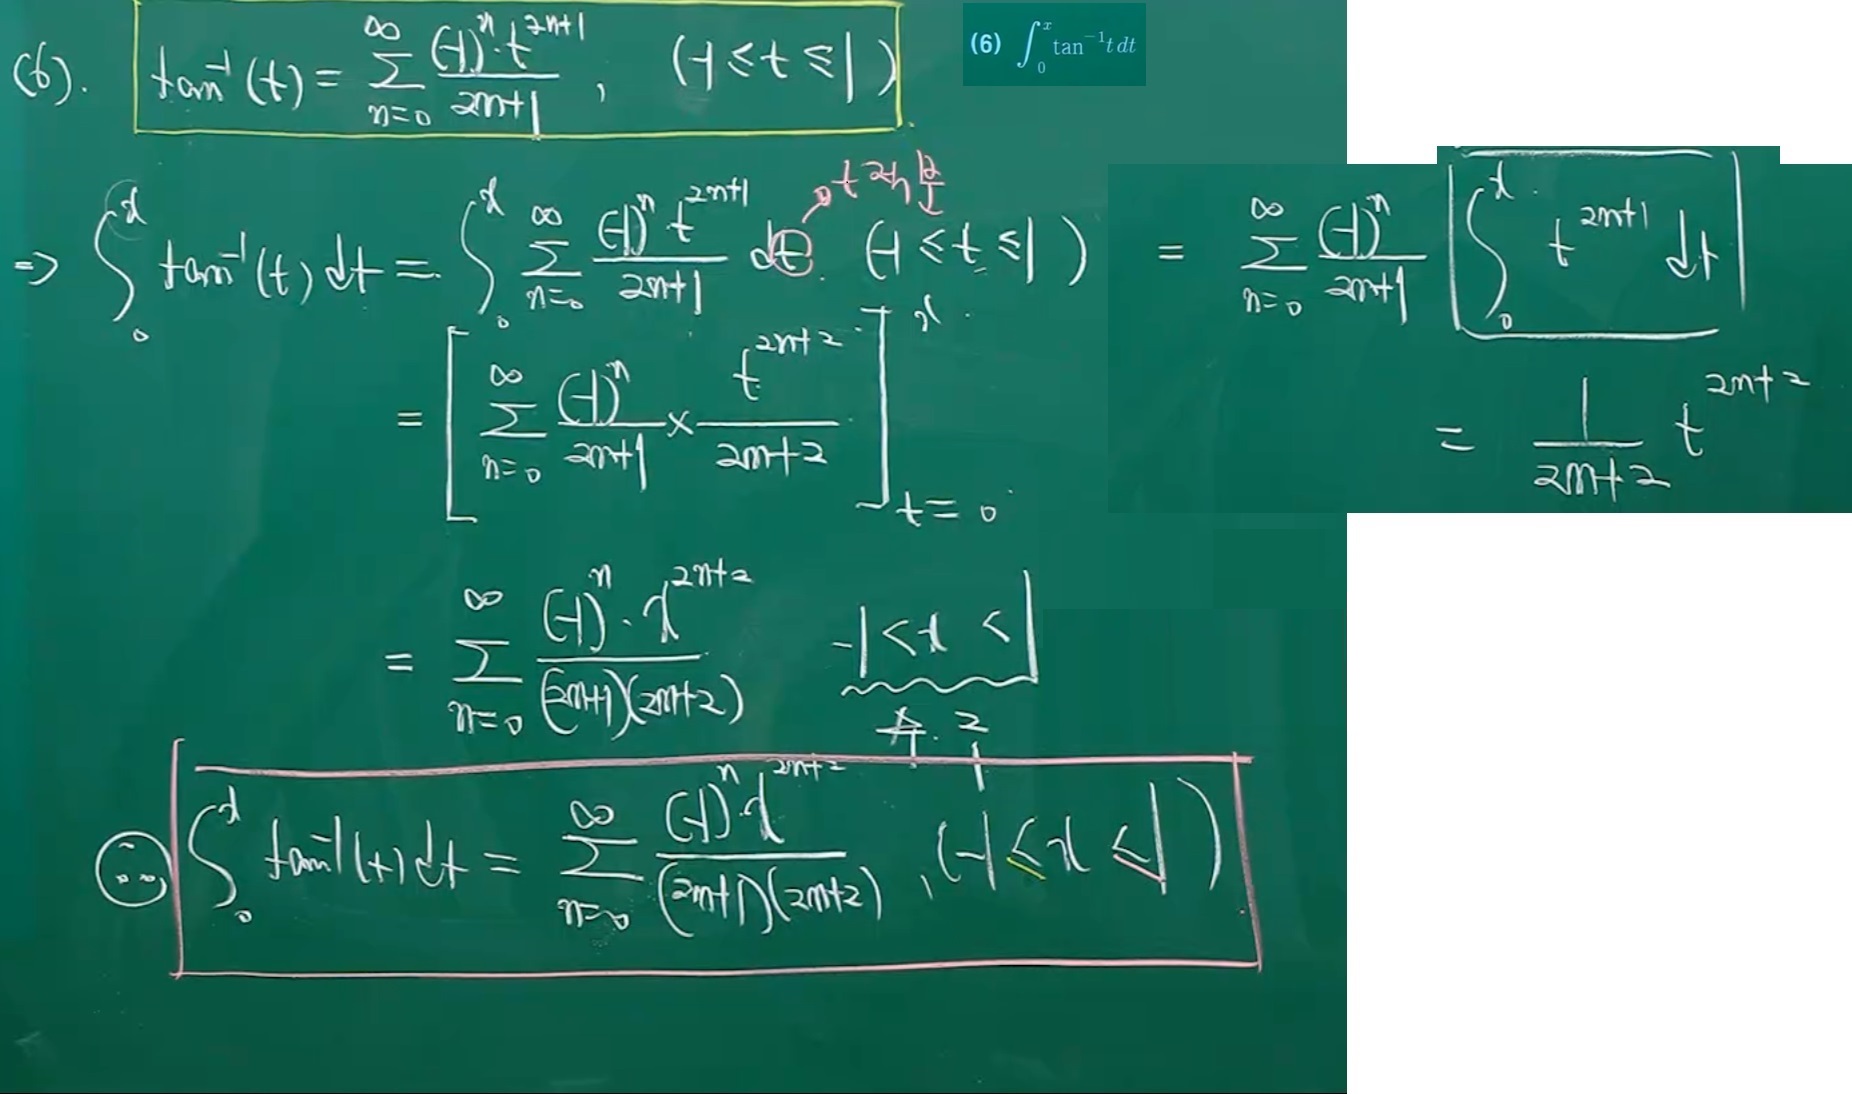 (6). tan⁻¹(t) = ∑_{n=0}^{∞} (-1)ⁿ·t^{2n+1} / 2n+1 , (-1 ≤ t ≤ 1)
(6) ∫₀ˣ tan⁻¹t dt
t 2n 
⇒ ∫₀ˣ tan⁻¹(t) dt = ∫₀ˣ ∑_{n=0}^{∞} (-1)ⁿ t^{2n+1} / 2n+1 dt. (-1 ≤ t ≤ 1)
= [ ∑_{n=0}^{∞} (-1)ⁿ / 2n+1 × t^{2n+2} / 2n+2 ]_{t=0}^{x}
= ∑_{n=0}^{∞} (-1)ⁿ / 2n+1 ∫₀ˣ t^{2n+1} dt
= 1 / 2n+2 t^{2n+2}
= ∑_{n=0}^{∞} (-1)ⁿ·x^{2n+2} / (2n+1)(2n+2) -1 < x < 1
∫₀ˣ tan⁻¹(t) dt = ∑_{n=0}^{∞} (-1)ⁿ·x^{2n+2} / (2n+1)(2n+2) , (-1 ≤ x ≤ 1)